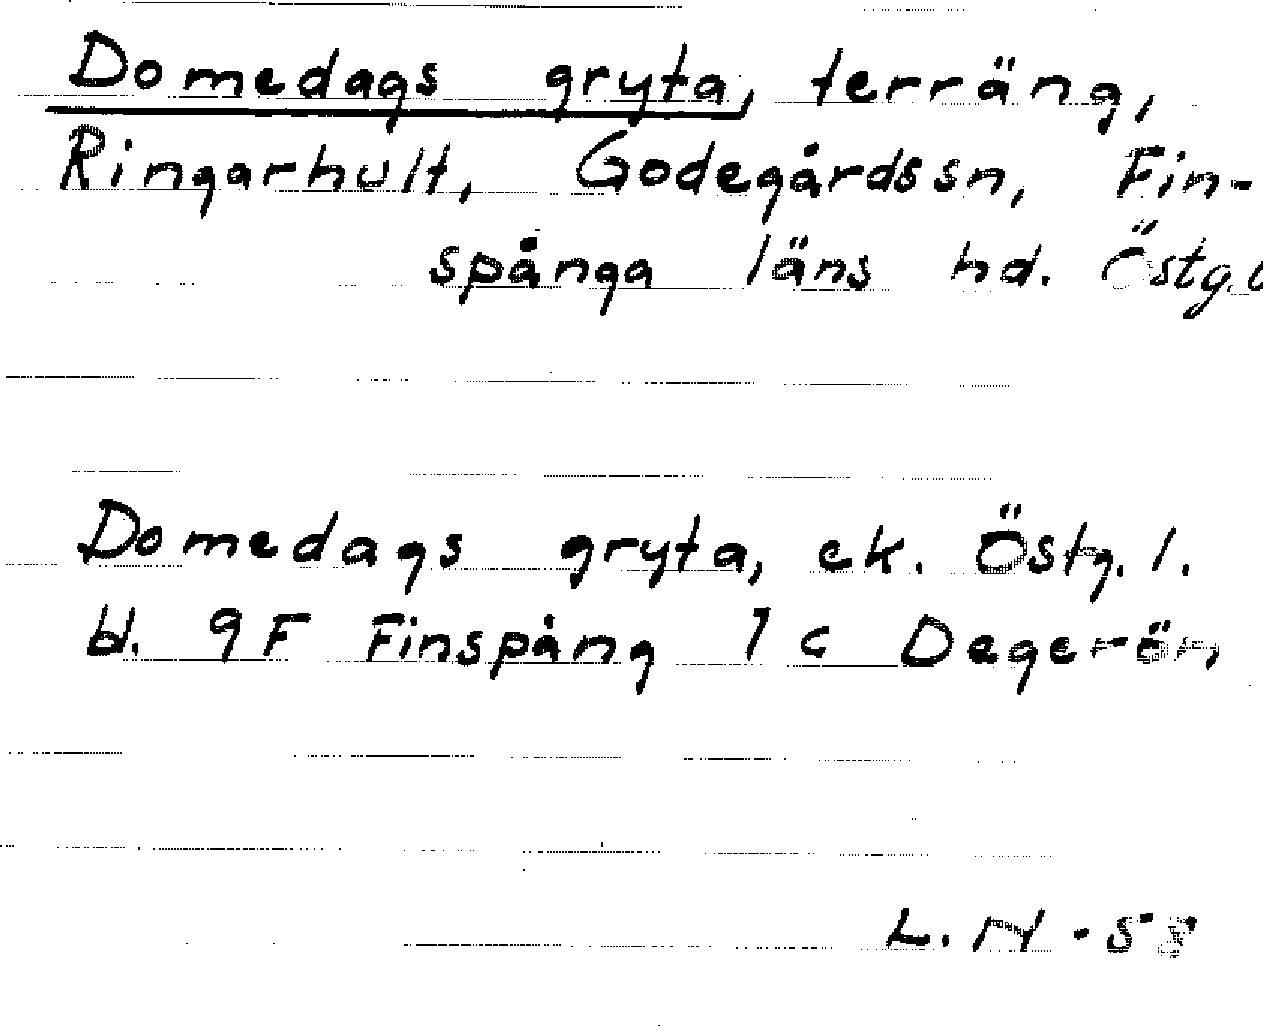 Domedags gryta, terräng,
Ringarhult, Godegårdssn, Fin-
spånga läns hd. Östg.
Domedags gryta, ek. Östg. l.
bl. 9F Finspång 1c Degerön
L. M -